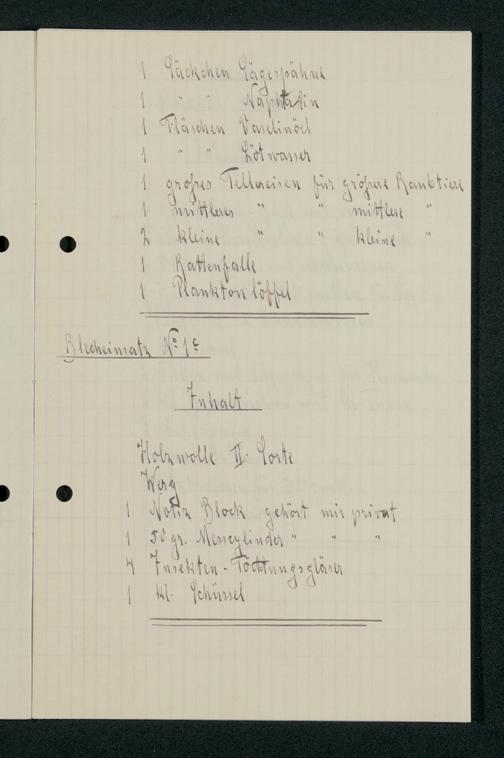 1 Säckchen Sägespähne
1 " " Naphtalin
1 Fläschen Vaselinöel
1 " " Lötwasser
1 großes Tellereisen für größere Raubtiere
1 mittleres " " mittlere "
2 kleine " " kleine "
1 Rattenfalle
1 Planktonlöffel
Blecheinsatz No 1c
Inhalt
Holzwolle II. Sorte
Werg
1 Notiz Block gehört mir privat
1 50 gr. Messcylinder " " "
4 Insekten-Töchtungsgläser
1 kl. Schüssel